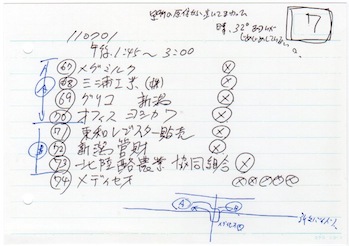 110701
7
晴 32°
午後 1:45〜3:00
67 メグミルク ×
68 三浦工業(株) ×
69 グリコ 新潟 ×
70 オフィス ヨシカワ ×
71 東和レジスター販売 ×
72 新潟管財 ×
73 北陸酪農業協同組合 ×
74 メディセオ ×××××
A
B
A
B
メディセオ
新潟バイパス